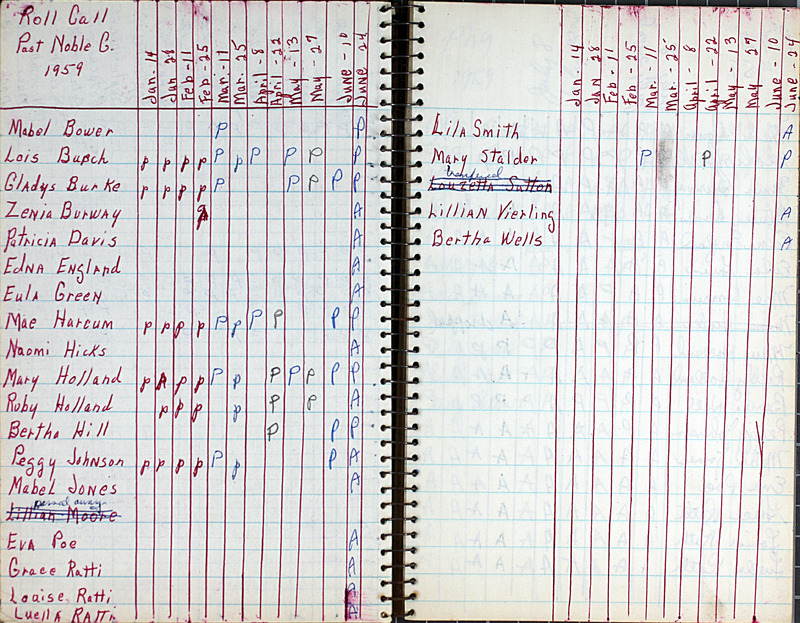 Roll Call
Past Noble G.
1959
Jan. 14 Jan 28 Feb-11 Feb-25 Mar.-11 Mar.-25 April-8 April-22 May-13 May-27 June-10 June 24
Mabel Bower P P
Lois Busch P P P P P P P P P P
Gladys Burke P P P P P P P P P
Zenia Burway A
Patricia Davis A
Edna England A
Eula Green A
Mae Harcum P P P P P P P P P P
Naomi Hicks A
Mary Holland P A P P P P P P P P P
Ruby Holland P P P P P P A
Bertha Hill P P P
Peggy Johnson P P P P P P P A
Mabel Jones A
passed away
Lillian Moore
Eva Poe A
Grace Ratti A
Louise Ratti A
Luella Ratti A
Jan. 14 Jan 28 Feb-11 Feb-25 Mar.-11 Mar.-25 April 8 April-22 May-13 May-27 June-10 June-24
Lila Smith A
Mary Stalder P P P
transfered
Louzetta Sutton
Lillian Vierling A
Bertha Wells A